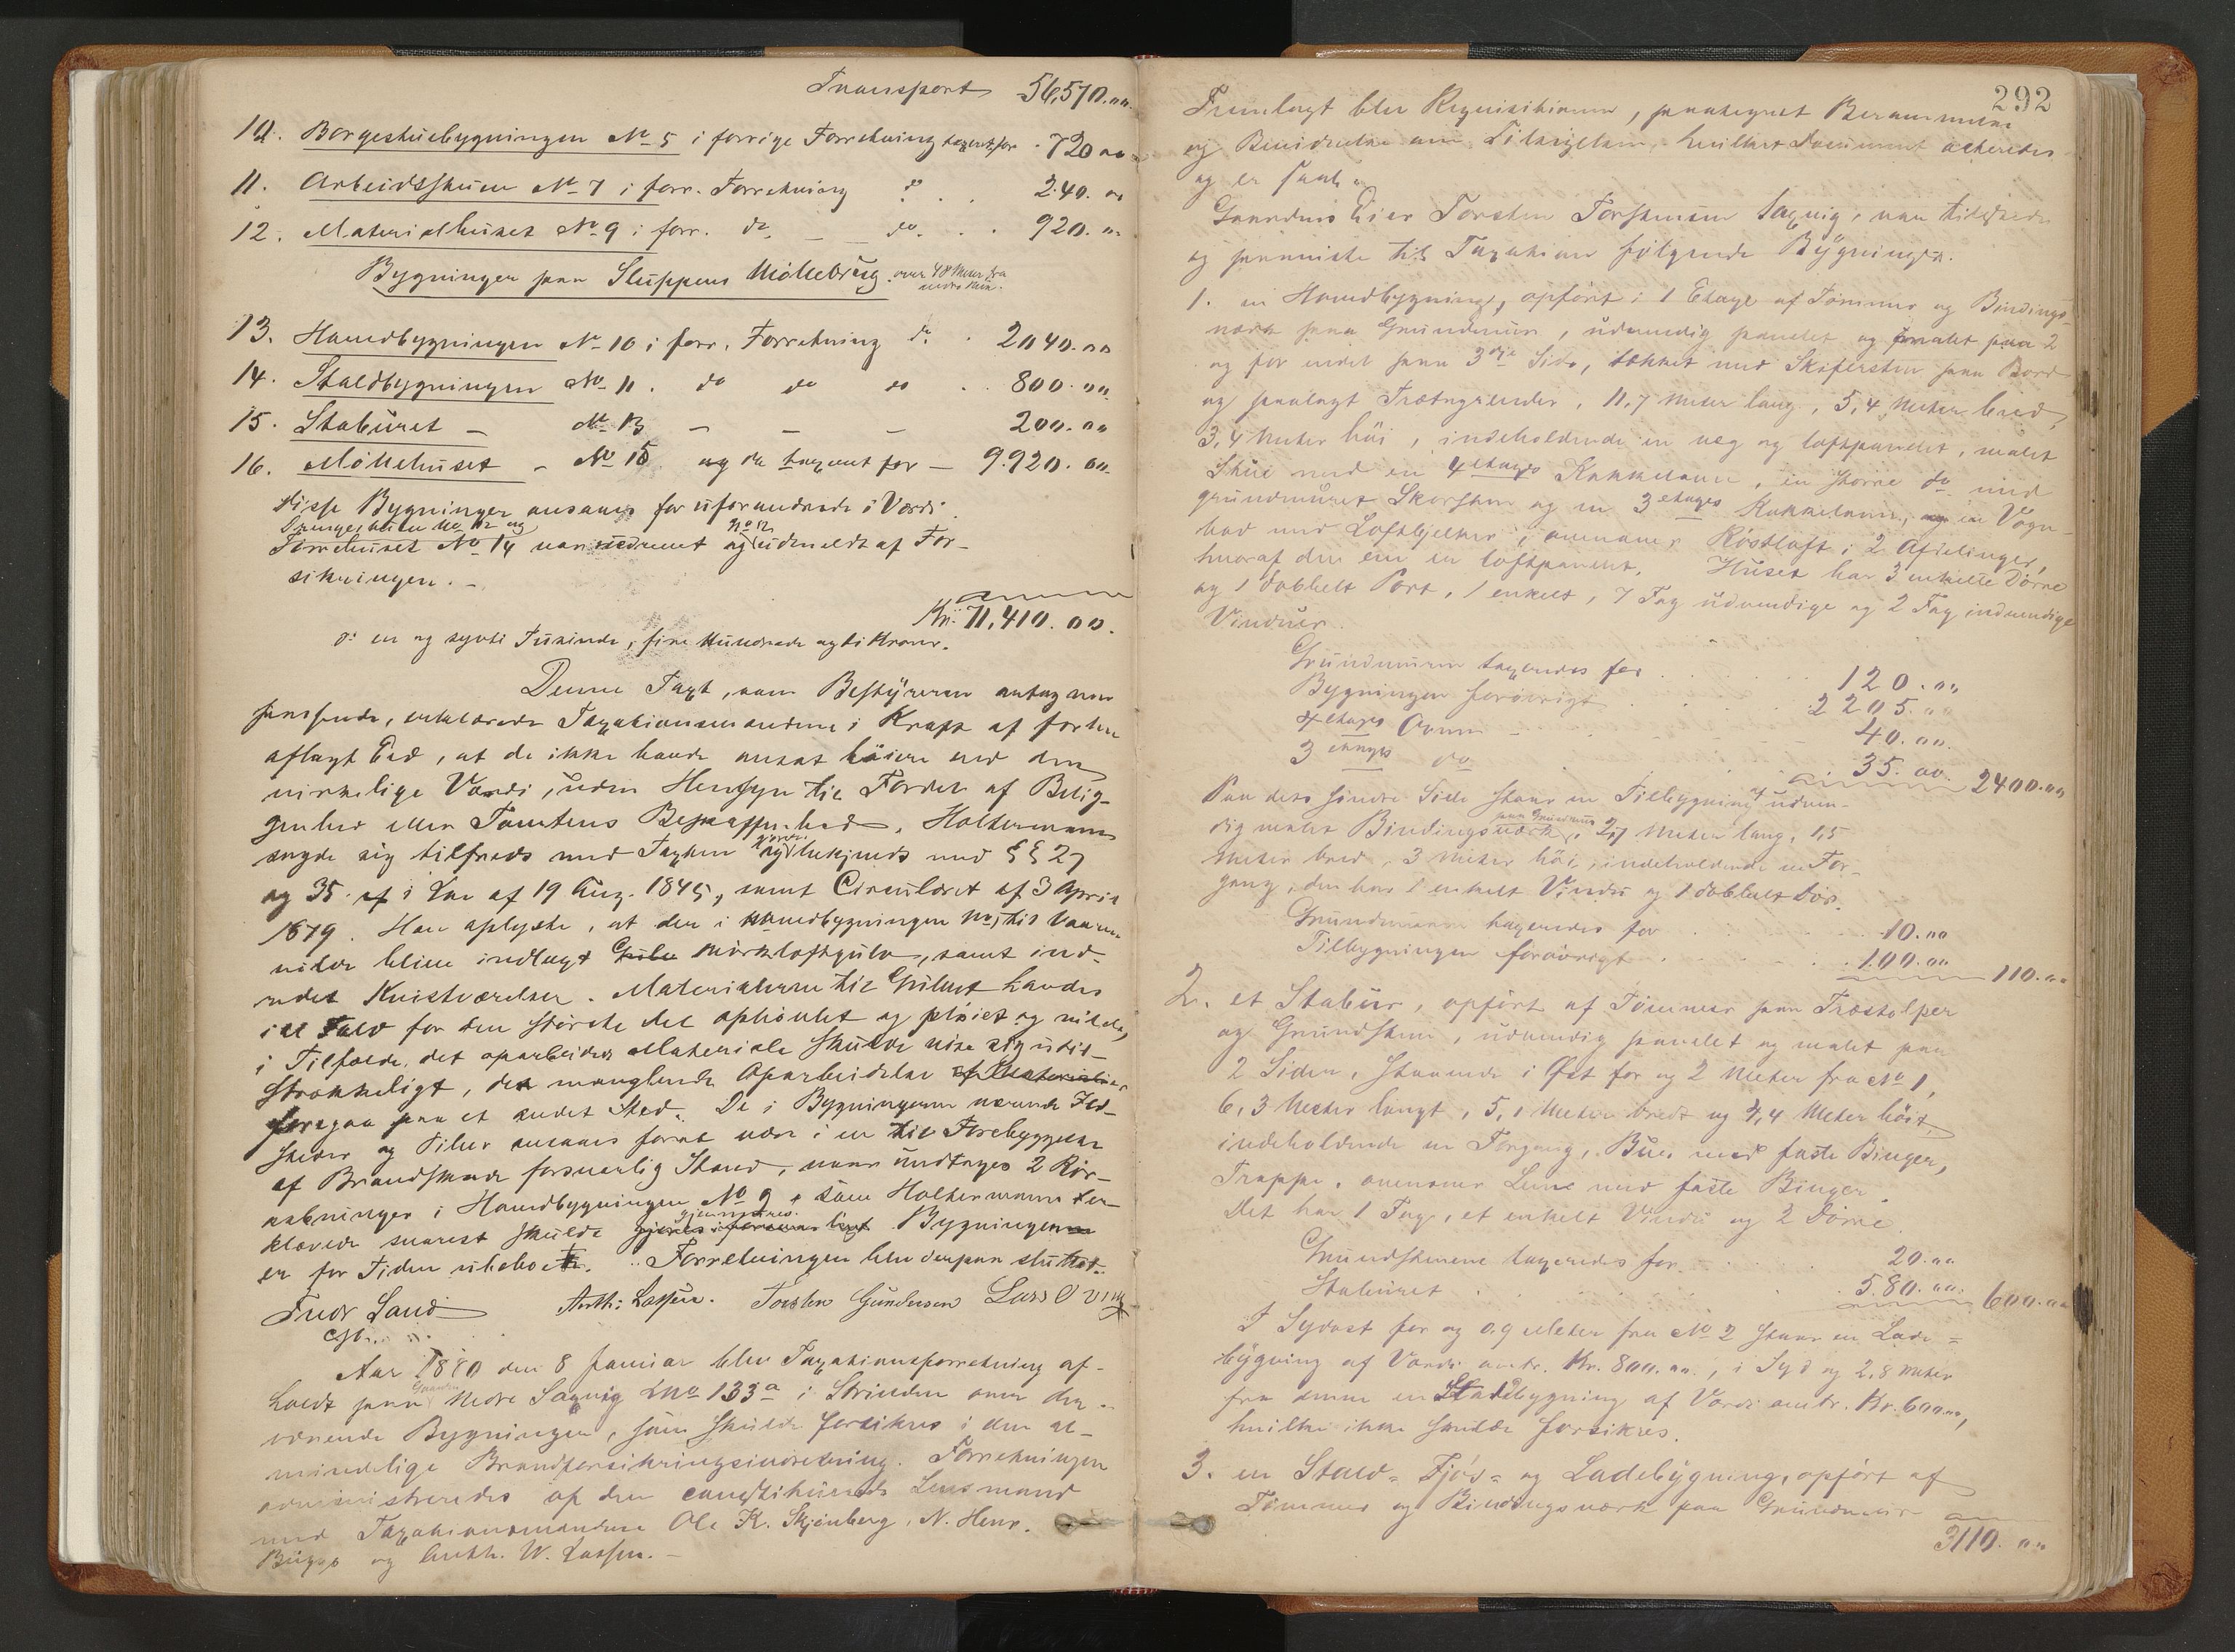 Transport 56,570.00
10. Borgestuebygningen No 5 i forrige Forretning taxeret for 720.00
11. Arbeidsstuen No 7 i forr. Forretning do 240.00
12. Materialhuset No 9 i forr. do do 920.00
Bygninger paa Sluppens Möllebrug. over 48 Meter fra
13. Hovedbygningen No 10 i forr. Forretning do 2040.00
14. Staldbygningen No 11. do do do 800.00
15. Staburet - No 13 - - - 200.00
16. Möllehuset - No 15 og da taxeret for - 9.920.00
disse Bygninger ansaaes for uforandrede i Værdi.
No 12 og
Törrehuset No 14 var nedrevet og udmeldt af For-
sikringen. -
Kr. 71,410.00.
o: en og sytti Tusinde, fire Hundrede og ti Kroner.
Denne Taxt, som Bestyreren antog var
passende, erklærede Taxationsmændene i Kraft af forhen
aflagt Eed, at de ikke havde ansat höiere end den
virkelige Værdi, uden Hensyn til Fordel af Belig-
genhed eller Tomtens Beskaffenhed. Holtermann
sagde sig tilfreds med Taxten og bekjendt med §§ 27
og 35 af i Lov af 19 Aug. 1845, samt Circulæret af 3 April
1879. Han oplyste, at der i Hovedbygningen No 1 til Vaaren
vilde blive indlagt Gulv Mörkloftgulv, samt ind-
redet Kvistværelser. Materialerne til Gulvet havdes
i et Talv for den störste del ophövlet og plöiet og vilde,
i Tilfælde, det oparbeidede Materiale skulde vise sig util-
strækkeligt, den manglende Oparbeidelse af Materialier
foregaa paa et andet Sted. De i Bygningerne værende Ild-
steder og Piber ansaaes forat være i en til Forebyggelse
af Brandskade forsvarlig Stand, naar undtages 2 Rör-
aabninger i Hovedbygningen No 9, som Holtermann er-
klærede snarest skulde gjenmures. Bygningerne
er for Tiden ubeboet. Forretningen blev derpaa sluttet.
Fredr Sand Anth: Lassen. Torsten Gundersen Lars Oving
Aar 1880 den 8 Januar blev Taxationsforretning af-
holdt paa Gaarden Nedre Saxvig LNo 133a i Strinden over de
værende Bygninger, som skulde forsikres i den al-
mindelige Brandforsikringsindretning. Forretningen
administreredes af den constituerede Lensmand
med Taxationsmændene Ole K. Skjönberg, N. Henr.
Bügge og Anth. W. Lassen. -
292
Fremlagt blev Requisitionen, paategnet Berammelse
og Beviidnelse om Tilsigelsen, hvilket Document acteredes
og er saal.
Gaardens Eier Torsten Torstensen Saxvig, var tilstede
og paaviste til Taxation fölgende Bygninger.
1. en Hovedbygning, opfört i 1 Etage af Tömmer og Bindings-
værk paa Grundmur, udvendig panelet og malet paa 2
og for endel paa 3die Side, tækket med Skifersten paa Bord
og paalagt Trætagrender, 11,7 Meter lang, 5,4 Meter bred,
3,4 Meter höi, indeholdende en væg og loftpanelet, malet
Stue med en 4 etages Kakkelovn, en större do med
grundmuret Skorsten og en 3 etages Kakkelovn, og en Vogn-
bod med Loftbjelker, ovenover Röstloft i 2 Afdelinger,
hvoraf den ene er loftpanelet. Huset har 3 enkelte Dörre
og 1 dobbelt Port, 1 enkelt, 7 Fag udvendige og 2 Fag indvendige
Vinduer.
Grundmuren taxeredes for 120.00
Bygningen forövrigt 2205.00
4 etages Ovnen 40.00
3 etages do 35.00 2400.00
Paa dens söndre Side staar en Tilbygning af udven-
dig malet Bindingsværk paa Grundmur, 2,7 Meter lang, 1,5
Meter bred, 3 Meter höi, indeholdende en For-
gang, den har 1 enkelt Vindu og 1 dobbelt Dör.
Grundmuren taxeredes for 10.00
Tilbygningen forövrigt 100.00 110.00
2. et Stabur, opfört af Tömmer paa Træstolper
og Grundstene, udvendig panelet og malet paa
2 Sider, staaende i Öst for og 2 Meter fra No 1,
6,3 Meter langt, 5,1 Meter bredt og 4,4 Meter höit,
indeholdende en Forgang, Bue med faste Binger,
Trappe, ovenover Lem med faste Binger.
Det har 1 Fag, et enkelt Vindu og 2 Dörre
Grundstenene taxeredes for 20.00
Staburet 580.00 600.00
I Sydost for og 0.9 Meter fra No 2 staar en Lade-
bygning af Værdi omtr. Kr. 800.00, i Syd og 2,8 Meter
fra denne en Staldbygning af Værdi omtr. Kr. 600.00,
hvilke ikke skulde forsikres.
3. en Stald- Fjös- og Ladebygning, opfört af
Tömmer og Bindingsværk paa Grundmur
3110.00